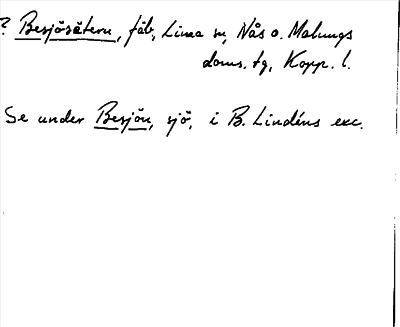 ? Besjösätern, fäb., Lima sn, Nås o. Malungs
doms. tg, Kopp. l.
Se under Besjön, sjö, i B. Lindéns exc.